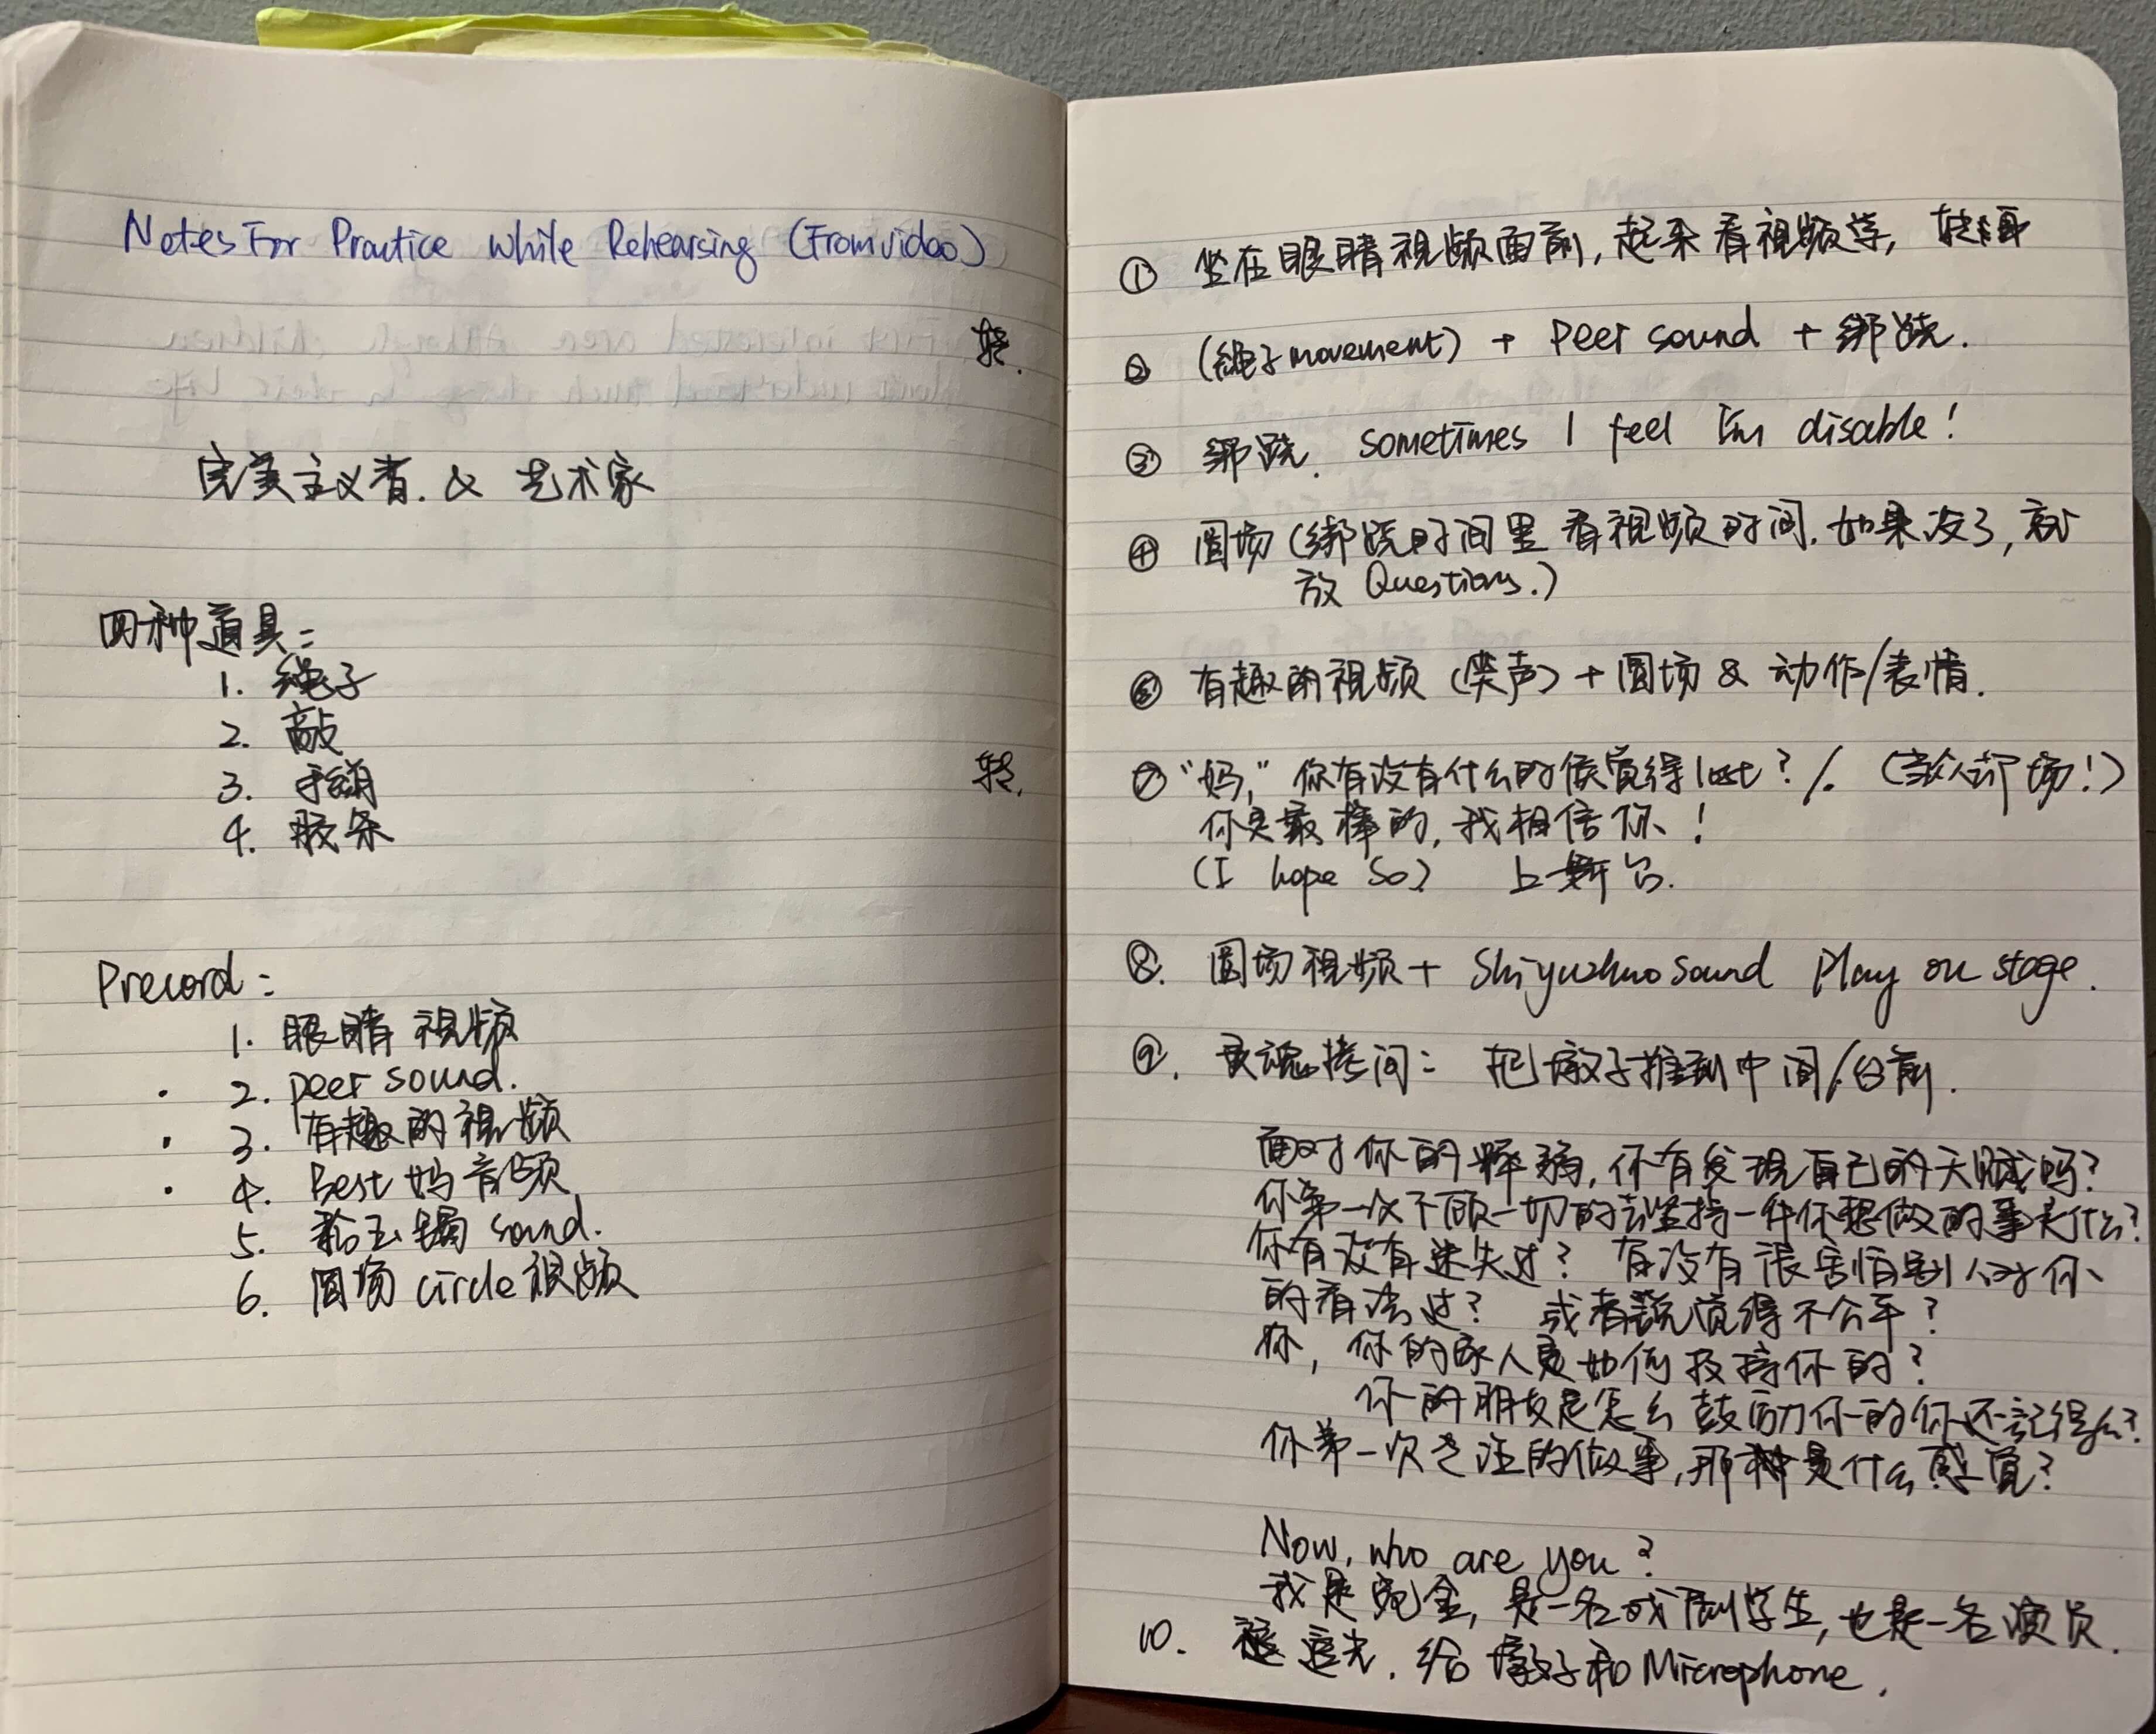 Notes For Practice while Rehearsing (From video)
转.
完美主义者. & 艺术家
四种道具:
1. 绳子
2. 敲
3. 手绢
转.
4. 胶条
Precord:
1. 眼睛视频
2. peer sound.
3. 有趣的视频
4. Best 妈音频
5. 拾玉镯 sound.
6. 圆场 circle 视频
① 坐在眼睛视频面前, 起来看视频学,
② (绳子 movement) + Peer sound + 绑跷.
③ 绑跷. sometimes I feel I'm disable!
④ 圆场 (绑跷时间里看视频时间. 如果没了, 就
放 Questions.)
⑥ 有趣的视频 (笑声) + 圆场 & 动作/表情.
⑦ "妈," 你有没有什么时候觉得 lost? /. ( 场!)
你是最棒的, 我相信你!
(I hope so) 上舞台.
⑧. 圆场视频 + Shiyuzhuo sound Play on stage.
⑨. 灵魂拷问: 把墩子推到中间/台前.
面对你的 弱, 你有发现自己的天赋吗?
你第一次不顾一切的去坚持一件你想做的事是什么?
你有没有迷失过? 有没有很害怕别人对你
的看法过? 或者说觉得不公平?
你, 你的家人是如何支持你的?
你的朋友是怎么鼓励你的你还记得么?
你第一次专注的做事, 那种是什么感觉?
Now, who are you?
我是宛金, 是一名戏剧学生, 也是一名演员.
10. 追光. 给墩子和 Microphone.